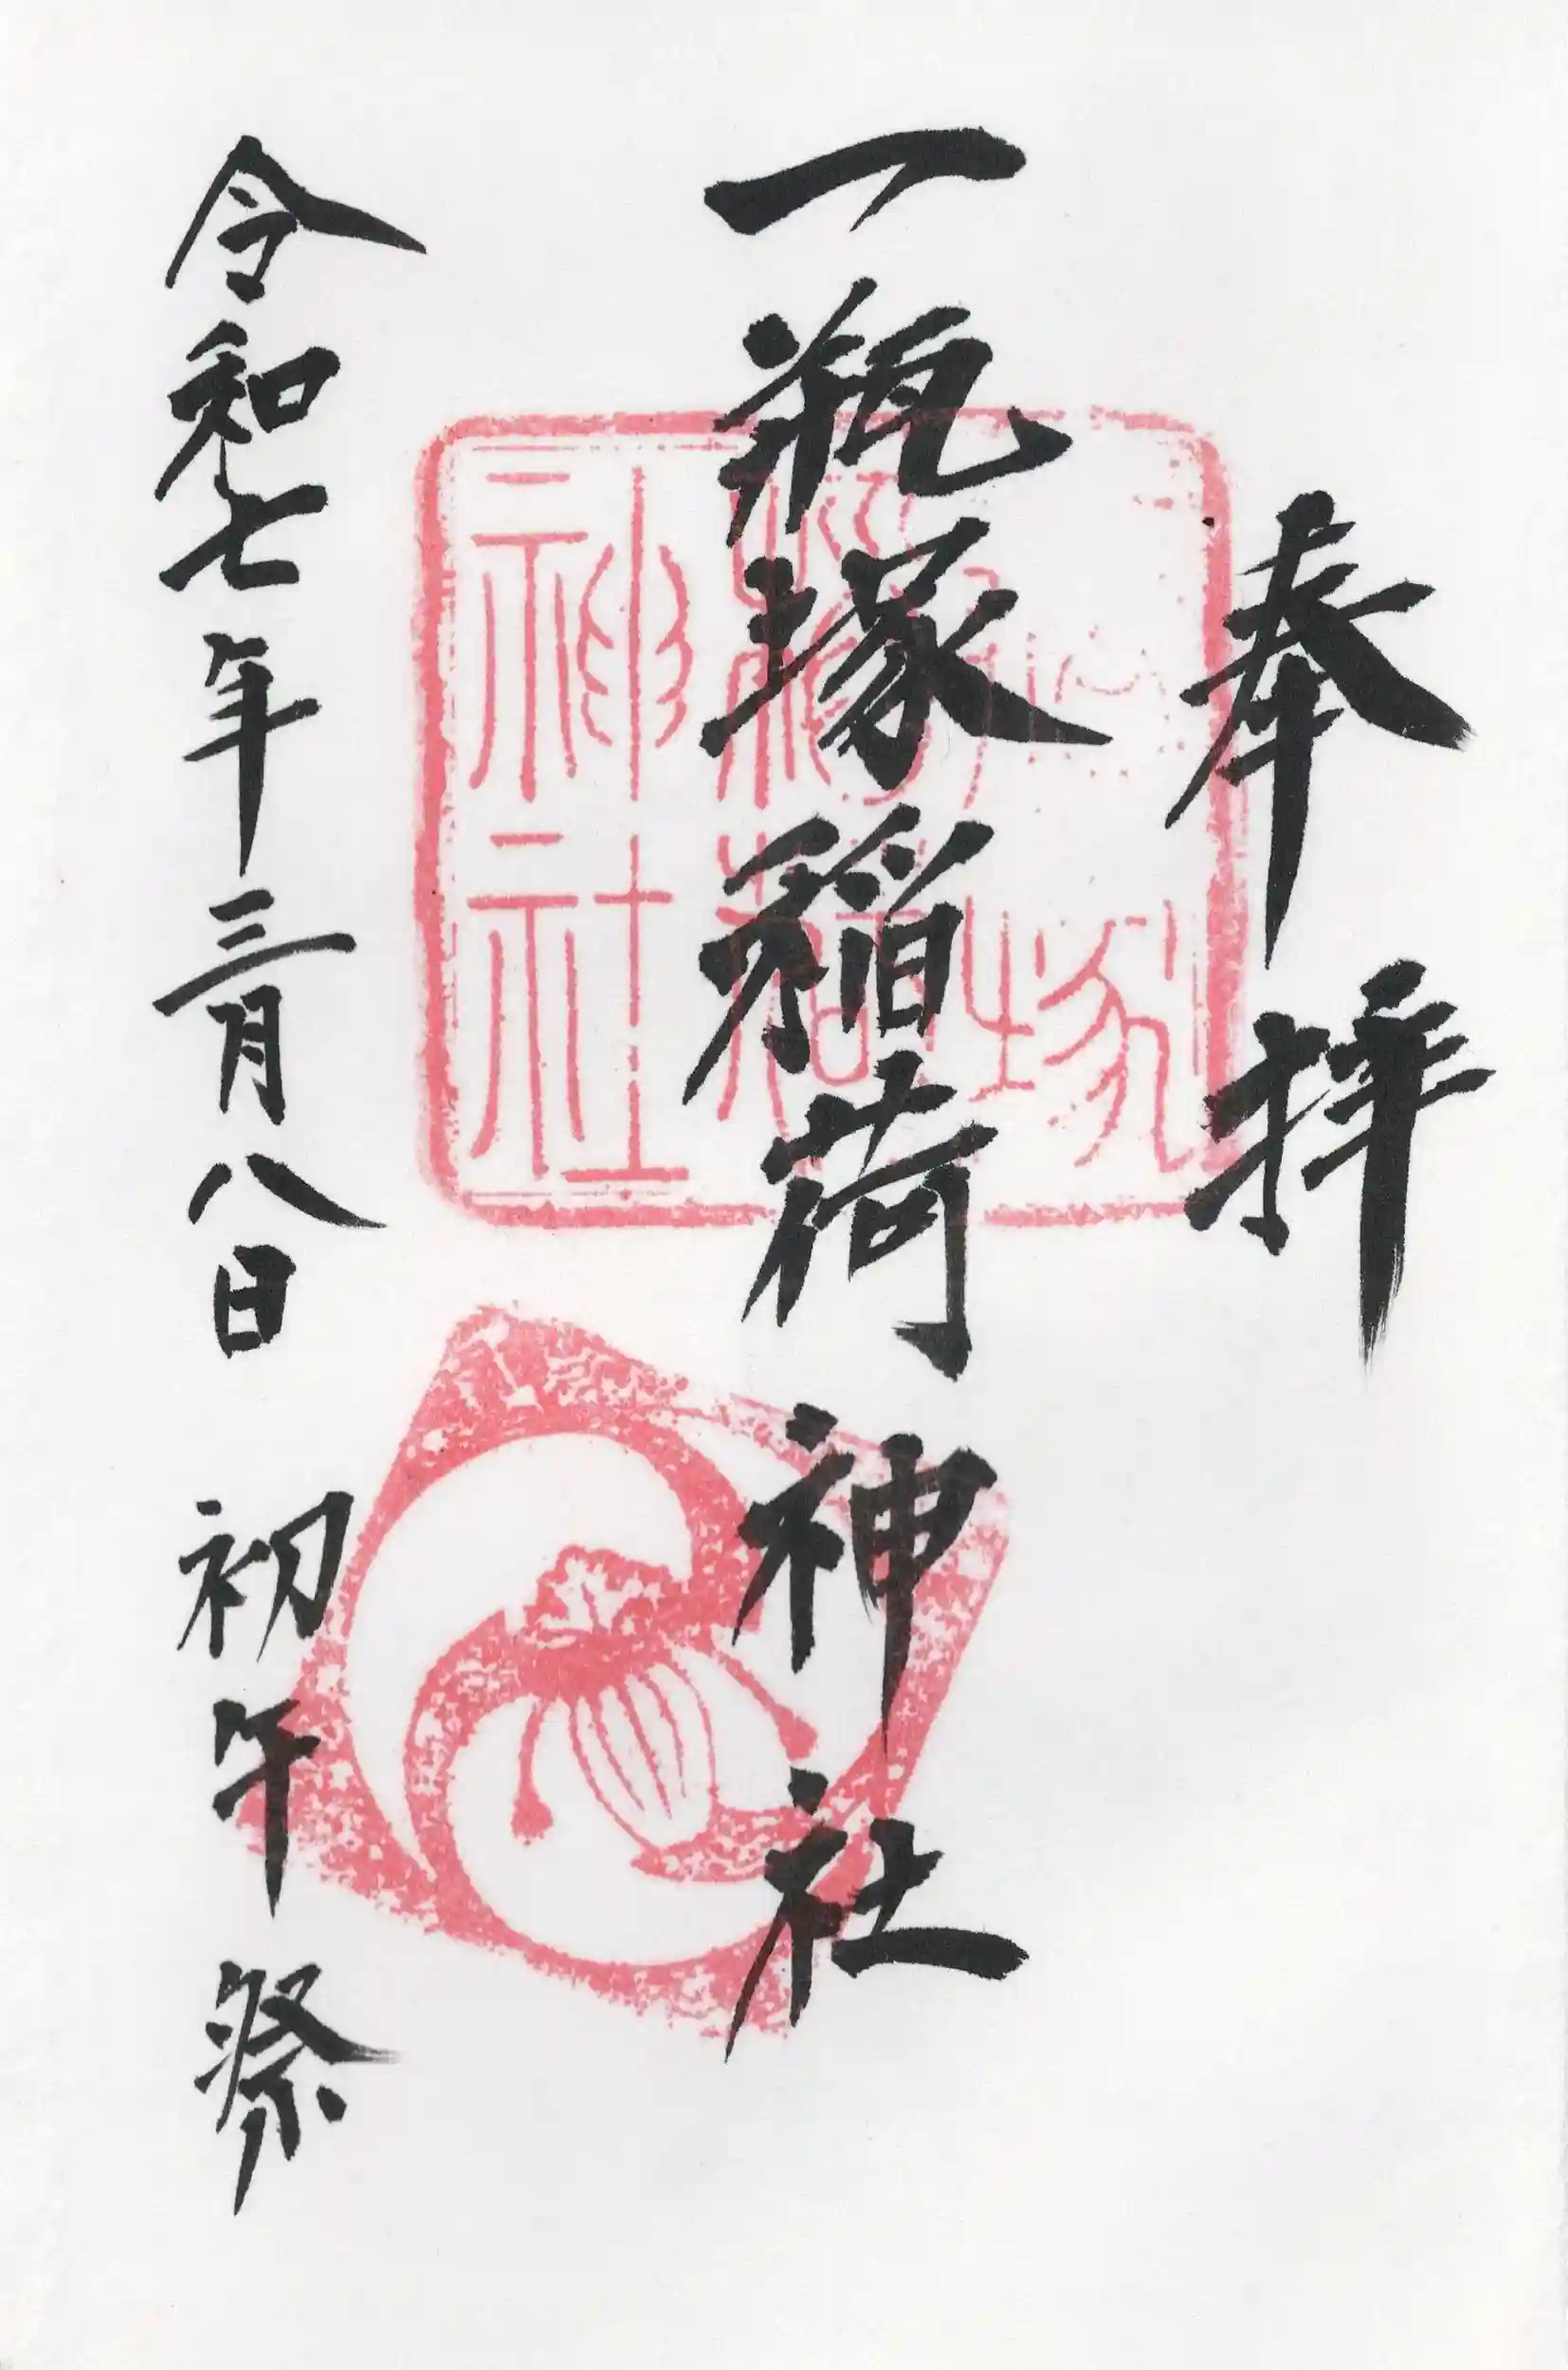 奉拝
一瓶塚稲荷神社
令和七年三月八日 初午祭
塚
稲荷
神社